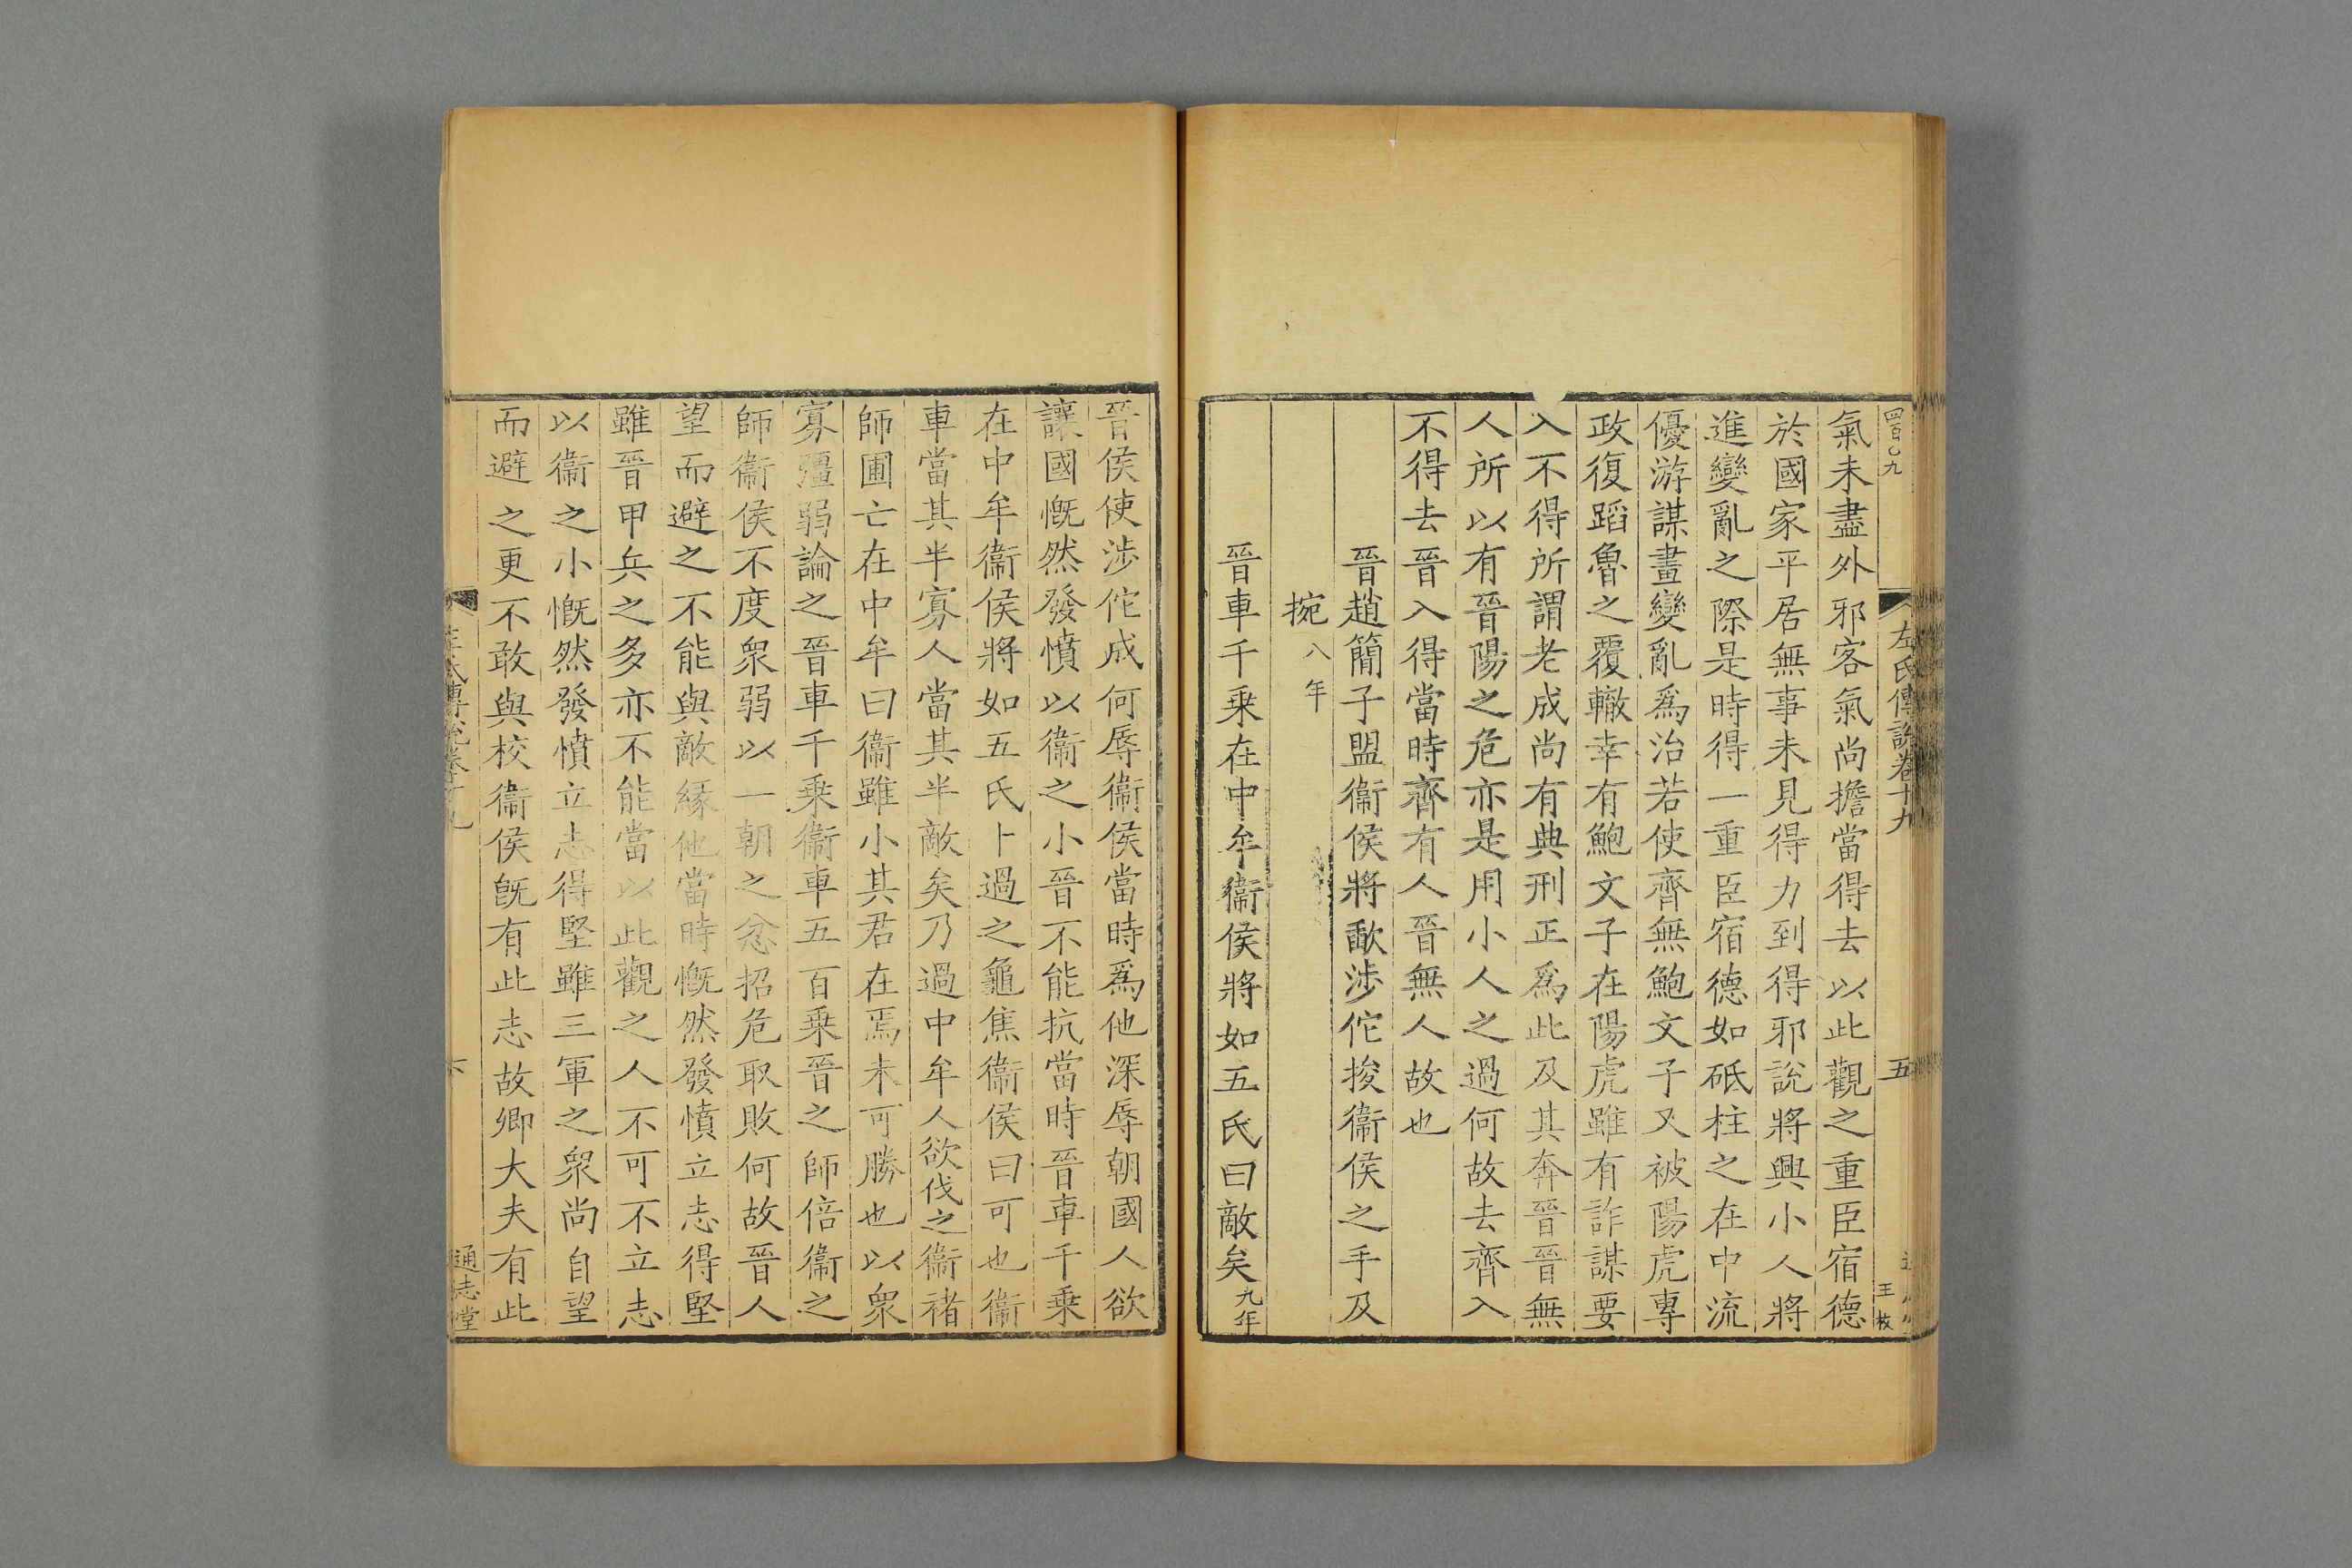 四百〇九
左氏傳說卷十九
五
王枚
氣未盡外邪客氣尚擔當得去以此觀之重臣宿德
於國家平居無事未見得力到得邪說將興小人將
進變亂之際是時得一重臣宿德如砥柱之在中流
優游謀畫變亂爲治若使齊無鮑文子又被陽虎專
政復蹈魯之覆轍幸有鮑文子在陽虎雖有詐謀要
入不得所謂老成尚有典刑正爲此及其奔晉晉無
人所以有晉陽之危亦是用小人之過何故去齊入
不得去晉入得當時齊有人晉無人故也
晉趙簡子盟衞侯將歃涉佗捘衞侯之手及
捥八年
晉車千乗在中牟衞侯將如五氏曰敵矣九年
晉侯使涉佗成何辱衞侯當時爲他深辱朝國人欲
讓國慨然發憤以衞之小晉不能抗當時晉車千乗
在中牟衞侯將如五氏卜過之龜焦衞侯曰可也衞
車當其半寡人當其半敵矣乃過中牟人欲伐之衞褚
師圃亡在中牟曰衞雖小其君在焉未可勝也以衆
寡彊弱論之晉車千乗衞車五百乗晉之師倍衞之
師衞侯不度衆弱以一朝之忿招危取敗何故晉人
望而避之不能與敵緣他當時慨然發憤立志得堅
雖晉甲兵之多亦不能當以此觀之人不可不立志
以衞之小慨然發憤立志得堅雖三軍之衆尚自望
而避之更不敢與校衞侯旣有此志故卿大夫有此
左氏傳說卷十九
六
通志堂